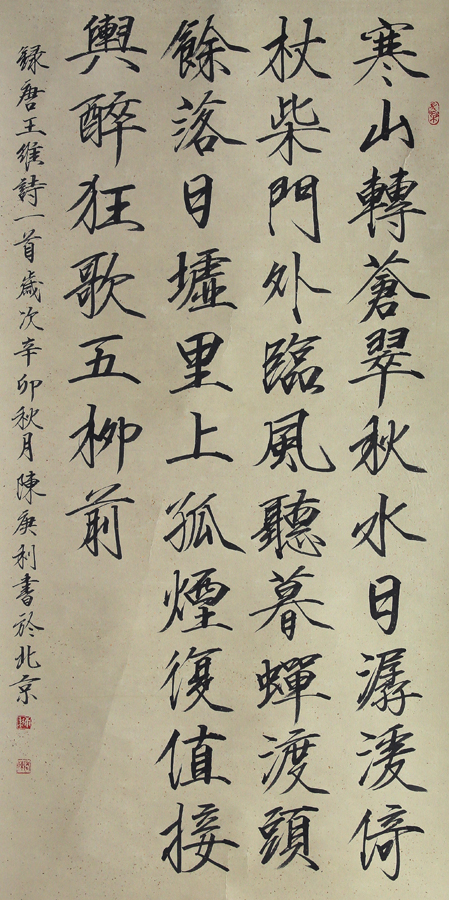 寒山轉蒼翠秋水日潺湲倚
杖柴門外臨風聽暮蟬渡頭
餘落日墟里上孤煙復值接
輿醉狂歌五柳前
録唐王維詩一首歲次辛卯秋月陳庚利書於北京